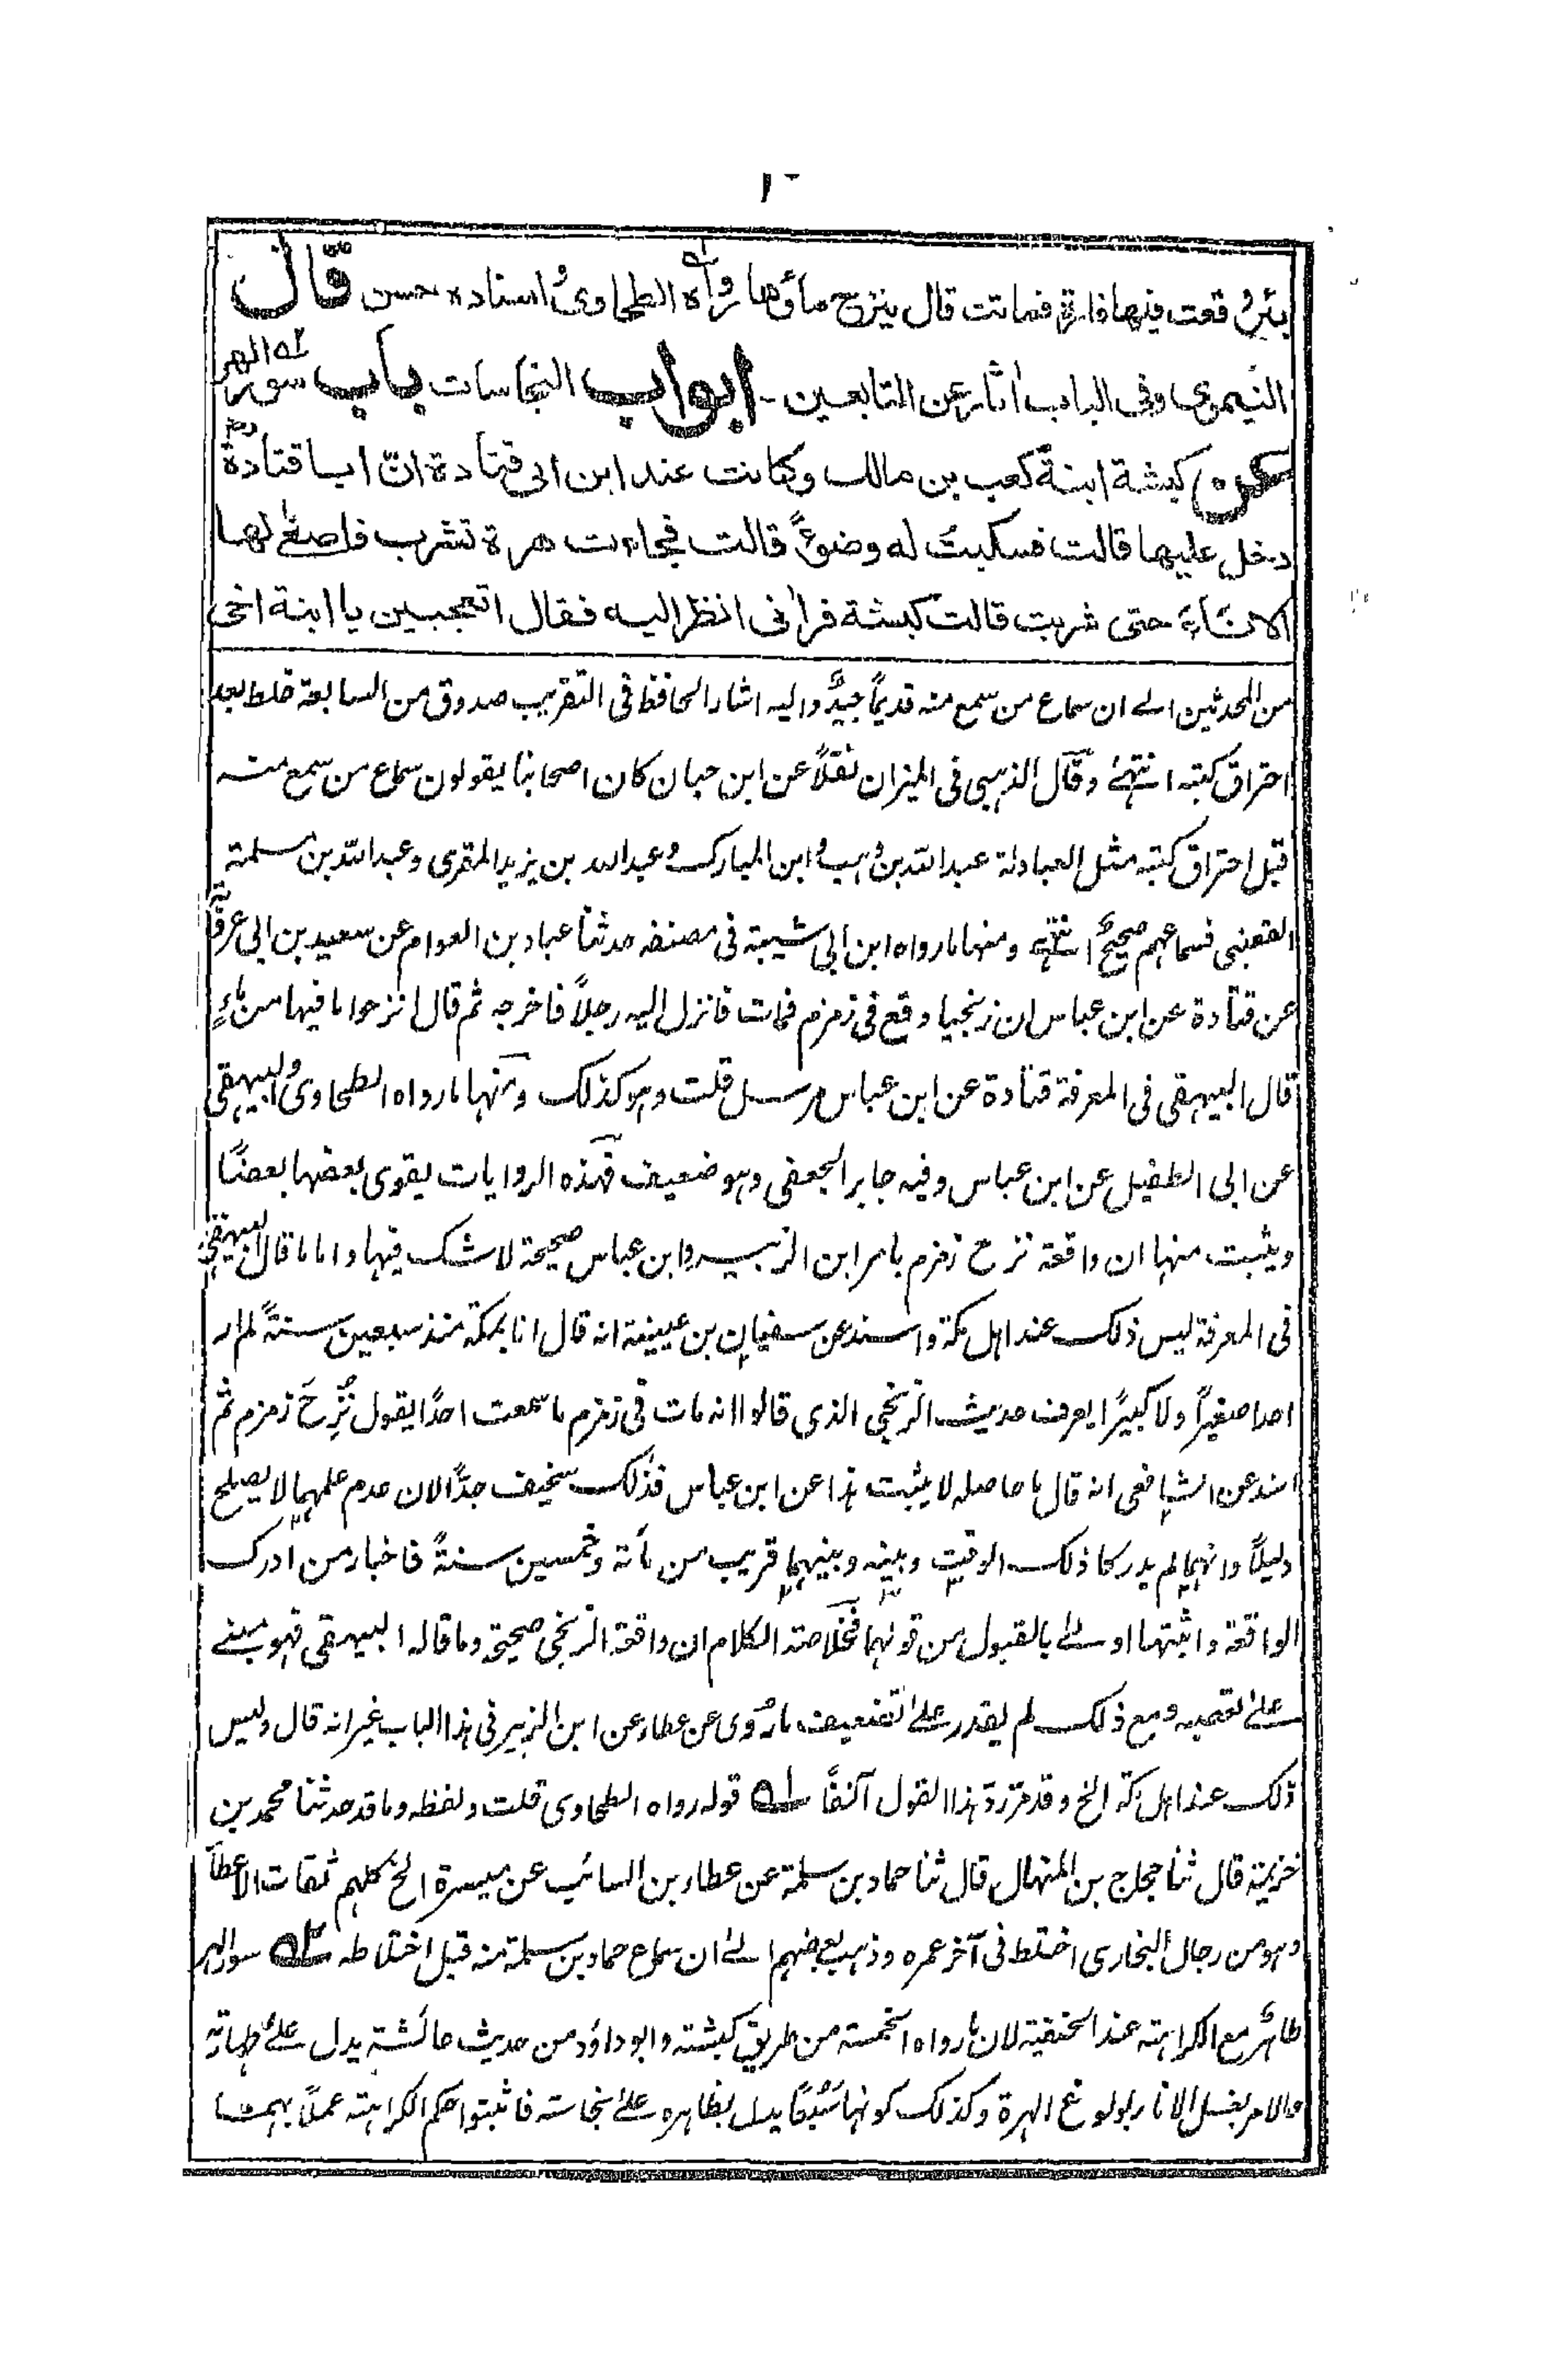 ١٠
بئر وقعت فيها فارة فماتت قال ينزح ماؤها رواه له الطحاوى واسناده حسن قال
النيموى وفى الباب اٰثار عن التابعين - ابواب النجاسات باب سور الهر
عن كبشة ابنة كعب بن مالك وكانت عند ابن ابى قتادة انّ ابا قتادة
دخل عليها قالت فسكبتُ له وضوءً قالت فجاءت هرة تشرب فاصغٰى لها
الاناء حتى شربت قالت كبشة فراٰنى انظر اليه فقال اتعجبين يا ابنة اخى
من المحدثين الے ان سماع من سمع منه قديمًا جيدٌ واليه اشار الحافظ فى التقريب صدوق من السابعة خلط بعد
احتراق كتبه انتهىٰ وقال الذهبى فى الميزان نقلاً عن ابن حبان كان اصحابنا يقولون سماع من سمع منه
قبل احتراق كتبه مثل العبادلة عبد الله بن وهب وابن المبارك وعبد الله بن يزيد المقرى وعبد الله بن مسلمة
القعنبى فسماعهم صحيحٌ انتهى ومنها ما رواه ابن ابى شيبة فى مصنفه حدثنا عباد بن العوام عن سعيد بن ابى عروبة
عن قتادة عن ابن عباس ان زنجيا وقع فى زمزم فمات فانزل اليه رجلاً فاخرجه ثم قال انزحوا ما فيها من ماءٍ
قال البيهقى فى المعرفة قتادة عن ابن عباس مرسل قلت وهو كذلك ومنها ما رواه الطحاوى والبيهقى
عن ابى الطفيل عن ابن عباس وفيه جابر الجعفى وهو ضعيف فهذه الروايات يقوى بعضها بعضًا
ويثبت منها ان واقعة نزح زمزم بامر ابن الزبير وابن عباس صحيحة لا شك فيها واما ما قال البيهقى
فى المعرفة ليس ذلك عند اهل مكة واسند عن سفيان بن عيينة انه قال انا بمكة منذ سبعين سنةً لم ار
احدا صغيرًا ولا كبيرًا يعرف حديث الزنجى الذى قالوا انه مات فى زمزم ما سمعت احدًا يقول نُزِحَ زمزم ثم
اسند عن الشافعى انه قال ما حاصله لا يثبت هذا عن ابن عباس فذلك سخيف جدًّا لان عدم علمهما لا يصلح
دليلاً وانهما لم يدركا ذلك الوقت وبينه وبينهما قريب من مأة وخمسين سنةً فاخبار من ادرك
الواقعة واثبتها اولىٰ بالقبول من قولهما فخلاصة الكلام ان واقعة الزنجى صحيحة وما قاله البيهقى فهو مبنے
علىٰ تعصبه ومع ذلك لم يقدر علىٰ تضعيف ما رُوى عن عطاء عن ابن الزبير فى هذا الباب غير انه قال وليس
ذلك عند اهل مكة الخ وقد مرّ ردّ هذا القول آنفًا لـه قوله رواه الطحاوى قلت ولفظه وما قد حدثنا محمد بن
خزيمة قال ثنا حجاج بن المنهال قال ثنا حماد بن سلمة عن عطاء بن السائب عن ميسرة الخ كلهم ثقات الا عطاً
وهو من رجال البخارى اختلط فى آخر عمره وذهب بعضهم الىٰ ان سماع حماد بن سلمة منه قبل اختلاطه سور الهر
طاهر مع الكراهة عند الحنفية لان ما رواه الخمسة من طريق كبشة وابو داؤد من حديث عائشة يدل علىٰ طهارته
والامر بغسل الاناء بولوغ الهرة وكذلك كونها سَبُعًا يدل بظاهره علىٰ نجاسته فاثبتوا حكم الكراهة عملاً بهما